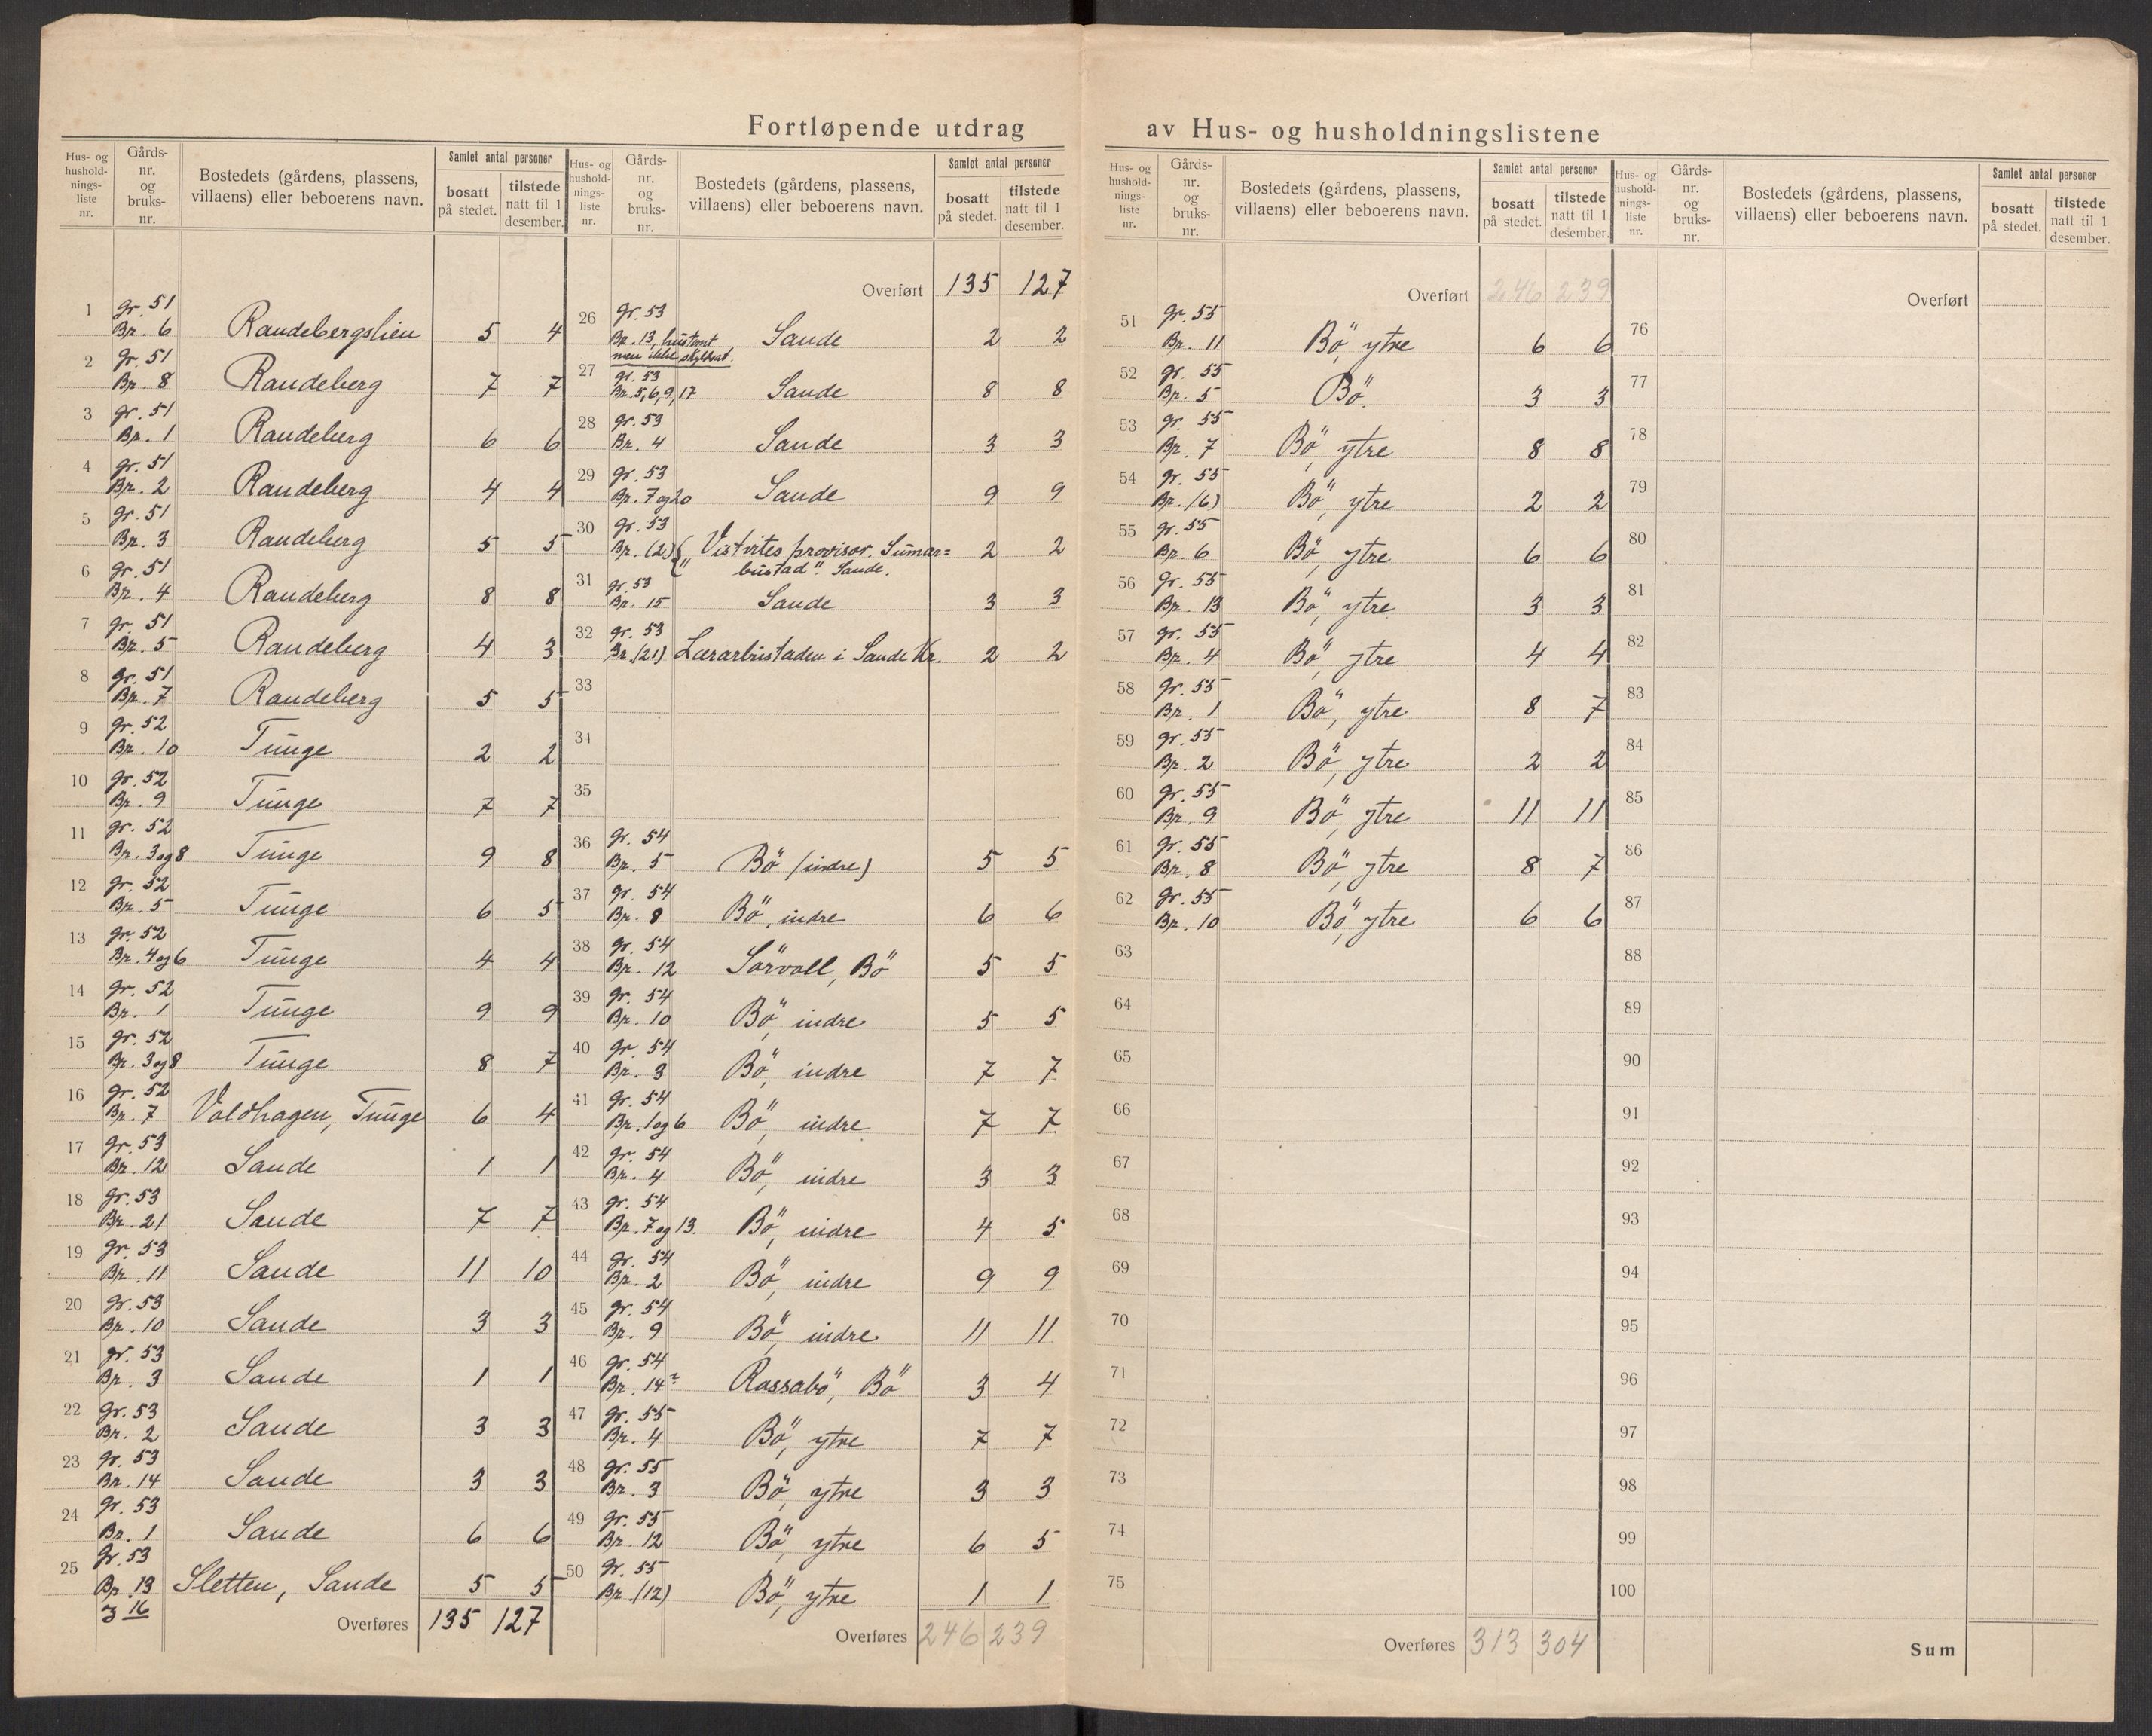 Fortløpende utdrag av Hus- og husholdningslistene
Hus- og husholdningsliste nr.
Gårdsnr. og bruksnr.
Bostedets (gårdens, plassens, villaens) eller beboerens navn.
Samlet antal personer
bosatt på stedet.
tilstede natt til 1 desember.
1 gr. 51 Br. 6 Randebergslien 5 4
2 gr. 51 Br. 8 Randeberg 7 7
3 gr. 51 Br. 1 Randeberg 6 6
4 gr. 51 Br. 2 Randeberg 4 4
5 gr. 51 Br. 3 Randeberg 5 5
6 gr. 51 Br. 4 Randeberg 8 8
7 gr. 51 Br. 5 Randeberg 4 3
8 gr. 51 Br. 7 Randeberg 5 5
9 gr. 52 Br. 10 Tunge 2 2
10 gr. 52 Br. 9 Tunge 7 7
11 gr. 52 Br. 3 og 8 Tunge 9 8
12 gr. 52 Br. 5 Tunge 6 5
13 gr. 52 Br. 4 og 6 Tunge 4 4
14 gr. 52 Br. 1 Tunge 9 9
15 gr. 52 Br. 3 og 8 Tunge 8 7
16 gr. 52 Br. 7 Voldhagen, Tunge 6 4
17 gr. 53 Br. 12 Sande 1 1
18 gr. 53 Br. 21 Sande 7 7
19 gr. 53 Br. 11 Sande 11 10
20 gr. 53 Br. 10 Sande 3 3
21 gr. 53 Br. 3 Sande 1 1
22 gr. 53 Br. 2 Sande 3 3
23 gr. 53 Br. 14 Sande 3 3
24 gr. 53 Br. 1 Sande 6 6
25 gr. 53 Br. 13 16 Sletten, Sande 5 5
Overføres 135 127
Hus- og husholdningsliste nr.
Gårdsnr. og bruksnr.
Bostedets (gårdens, plassens, villaens) eller beboerens navn.
Samlet antal personer
bosatt på stedet.
tilstede natt til 1 desember.
Overført 135 127
26 gr. 53 Br. 13, men ikke skyldsat. Sande 2 2
27 gr. 53 Br. 5, 6, 9, 17 Sande 8 8
28 gr. 53 Br. 4 Sande 3 3
29 gr. 53 Br. 7 og 20 Sande 9 9
30 gr. 53 Br. (2) " provisor. Sumar=
bustad". Sande. 2 2
31 gr. 53 Br. 15 Sande 3 3
32 gr. 53 Br. (21) Lærarbustaden i Sande Kr. 2 2
33
34
35
36 gr. 54 Br. 5 Bö (indre) 5 5
37 gr. 54 Br. 8 Bö, indre 6 6
38 gr. 54 Br. 12 Sörvoll, Bö 5 5
39 gr. 54 Br. 10 Bö, indre 5 5
40 gr. 54 Br. 3 Bö, indre 7 7
41 gr. 54 Br. 1 og 6 Bö, indre 7 7
42 gr. 54 Br. 4 Bö, indre 3 3
43 gr. 54 Br. 7 og 13. Bö, indre 4 5
44 gr. 54 Br. 2 Bö, indre 9 9
45 gr. 54 Br. 9 Bö, indre 11 11
46 gr. 54 Br. 14 Rossabö, Bö 3 4
47 gr. 55 Br. 4 Bö, ytre 7 7
48 gr. 55 Br. 3 Bö, ytre 3 3
49 gr. 55 Br. 12 Bö, ytre 6 5
50 gr. 55 Br. (12) Bö, ytre 1 1
Overføres 246 239
Hus- og husholdningsliste nr.
Gårdsnr. og bruksnr.
Bostedets (gårdens, plassens, villaens) eller beboerens navn.
Samlet antal personer
bosatt på stedet.
tilstede natt til 1 desember.
Overført 246 239
51 gr. 55 Br. 11 Bö, ytre 6 6
52 gr. 55 Br. 5 Bö. 3 3
53 gr. 55 Br. 7 Bö, ytre 8 8
54 gr. 55 Br. (6) Bö, ytre 2 2
55 gr. 55 Br. 6 Bö, ytre 6 6
56 gr. 55 Br. 13 Bö, ytre 3 3
57 gr. 55 Br. 4 Bö, ytre 4 4
58 gr. 55 Br. 1 Bö, ytre 8 7
59 gr. 55 Br. 2 Bö, ytre 2 2
60 gr. 55 Br. 9 Bö, ytre 11 11
61 gr. 55 Br. 8 Bö, ytre 8 7
62 gr. 55 Br. 10 Bö, ytre 6 6
63
64
65
66
67
68
69
70
71
72
73
74
75
Overføres 313 304
Hus- og husholdningsliste nr.
Gårdsnr. og bruksnr.
Bostedets (gårdens, plassens, villaens) eller beboerens navn.
Samlet antal personer
bosatt på stedet.
tilstede natt til 1 desember.
Overført
76
77
78
79
80
81
82
83
84
85
86
87
88
89
90
91
92
93
94
95
96
97
98
99
100
Sum